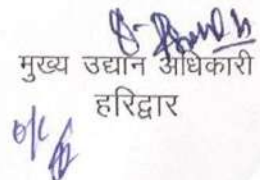 मुख्य उद्यान अधिकारी
हरिद्वार
o/c